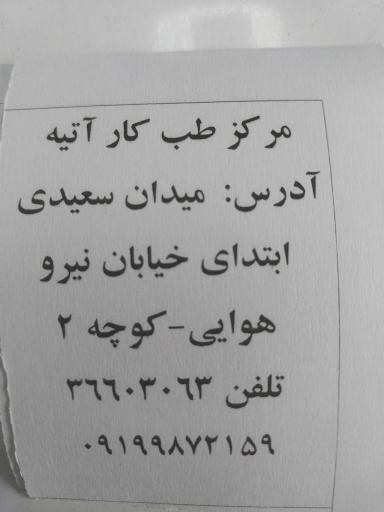 مرکز طب کار آتیه
آدرس: میدان سعیدی
ابتدای خیابان نیرو
هوایی-کوچه ۲
تلفن ۳۶۶۰۳۰۶۳
۰۹۱۹۹۸۷۲۱۵۹